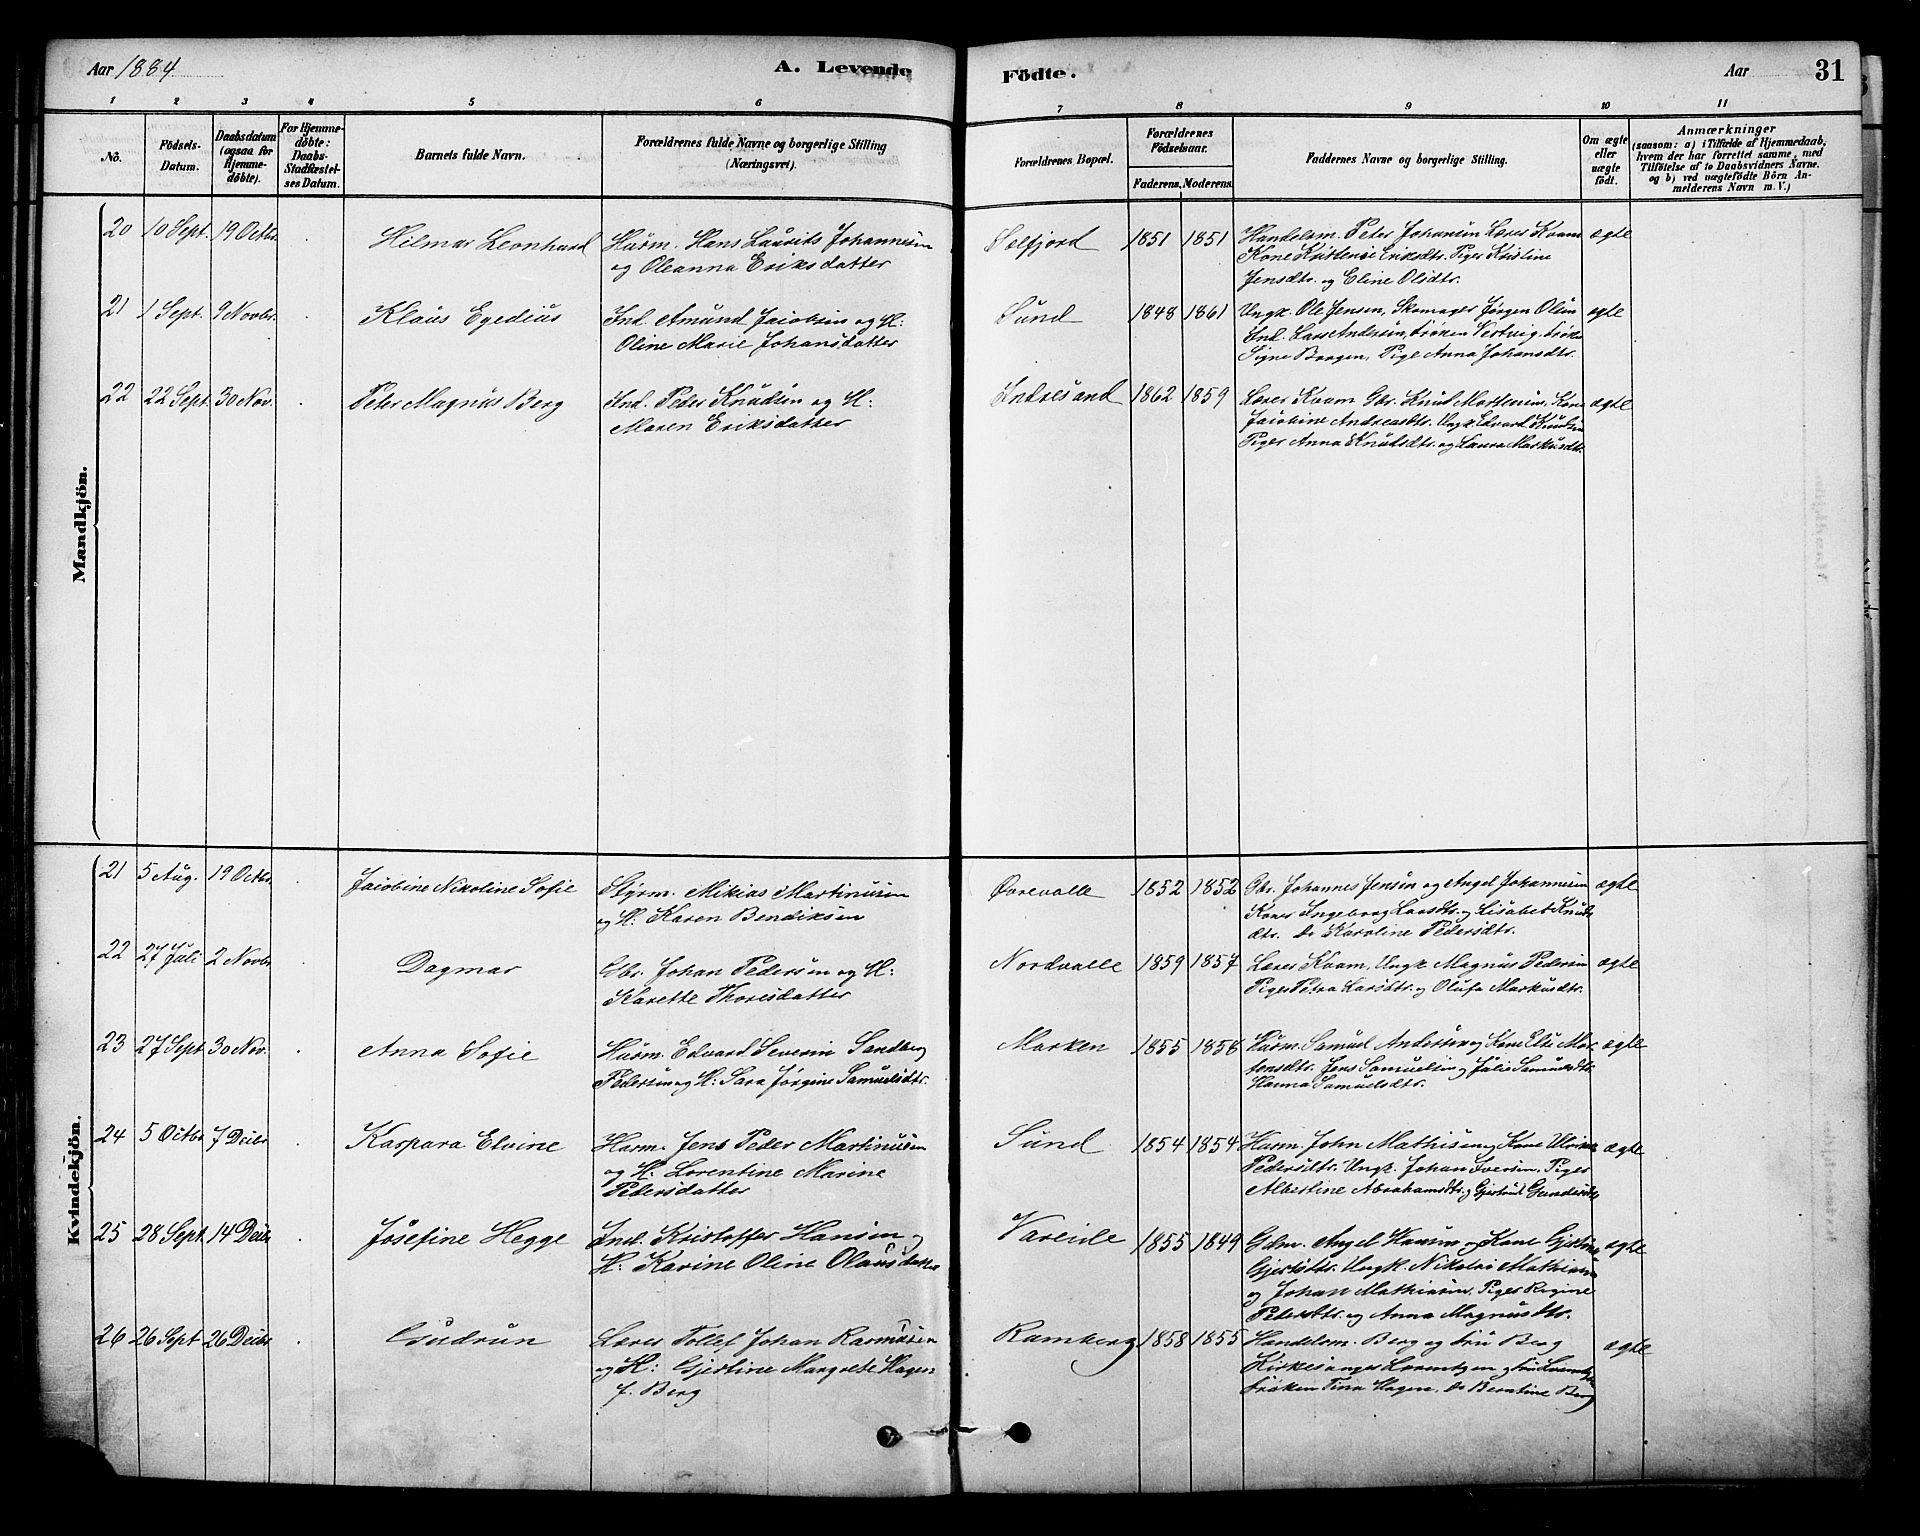 Aar 1884
A. Levende
Födte.
Aar
31
1 2 3 4 5 6 7 8 9 10 11
No.
Födsels-
Datum.
Daabsdatum
(ogsaa for
Hjemme-
döbte).
For Hjemme-
döbte:
Daabs-
Stadfæstel-
ses Datum.
Barnets fulde Navn.
Forældrenes fulde Navne og borgerlige Stilling
(Næringsvei).
Forældrenes Bopæl.
Forældrenes
Födselsaar.
Faderens. Moderens.
Faddernes Navne og borgerlige Stilling.
Om ægte
eller
uægte
født.
Anmærkninger
(saasom: a) i Tilfælde af Hjemmedaab,
hvem der har forrettet samme, med
Tilföielse af to Daabsvidners Navne.
og b) ved uægtefödte Börn An-
melderens Navn m. V.)
Mandkjön.
20 10 Sept. 19 Octbr. Hilmar Leonhard
Husm. Hans Laurits Johannesen
og Oleanna Eriksdatter
Selfjord 1851 1851
Handelsm. Peter Johansen Lærer Kvam
Kone Kristense Eriksdtr. Piger Kristine
Jensdtr. og Eline Olsdtr.
ægte
21 1 Sept. 9 Novbr. Klaus Egedius
Ind. Amund Jacobsen og H:
Oline Marie Johansdatter
Sund 1848 1861
Ungk. Ole Jensen, Skomager Jørgen Olsen
Ind. Lars Andersen, Frøken Hertvig, Frøken
Signe Baagen, Pige Anna Johansdtr.
ægte
22 22 Sept. 30 Nov. Peter Magnus Berg
Ind. Peder Knudsen og H:
Maren Eriksdatter
Andresand 1862 1859
Lærer Kvam Gbr. Knud Mortensen, Kone
Jacobine Andreasdtr. Ungk. Edvard Knudsen
Piger Anna Knudsdtr. og Laura Markusdtr.
ægte
Kvindekjön.
21 5 Aug. 19 Octbr. Jacobine Nikoline Sofie
Styrm. Mikias Martinusen
og H: Karen Bendiksen
Øvrevalle 1852 1852
Gbr. Johannes Jensen og Angel Johannesen
Koner Ingeborg Larsdtr. og Lisabet Knuds
dtr. do Karoline Pedersdtr.
ægte
22 27 Juli 2 Novbr. Dagmar
Gbr. Johan Pedersen og H:
Karette Thoresdatter
Nordvalle 1859 1857
Lærer Kvam, Ungk. Magnus Pedersen
Piger Petra Larsdtr. og Olufa Markusdtr.
ægte
23 27 Sept 30 Nov. Anna Sofie
Husm. Edvard Severin Sandberg
Pedersen og H: Sara Jørgine Samuelsdtr.
Marken 1855 1858
Husm. Samuel Andersen og Kone Else Mor
tensdtr. Jens Samuelsen og Julie Samuelsdtr.
Hanna Samuelsdtr.
ægte
24 5 Octbr 7 Decbr Kaspara Elvine
Husm. Jens Peder Martinusen
og H: Lorentine Marine
Pedersdatter
Sund 1854 1854
Husm. John Mathisen og Kone Ulrikke
Pedersdtr. Ungk. Johan Iversen, Piger
Albertine Abrahamsdtr. og Gjertrud Gundersdtr
ægte
25 28 Sept. 14 Decbr Josefine Hegge
Ind. Kristoffer Hansen og
H: Karine Oline Olausdatter
Vareide 1855 1849
Gdm. Angel Hansen og Kone Gjertine
Gjertsdtr. Ungk. Nikolai Mathisen
og Johan Mathiasen, Piger Regine
Pedersdtr. og Anna Magnusdtr.
ægte
26 26 Sept 26 Decbr Gudrun
Lærer Tollef Johan Rasmusen
og H: Gjertine Margrete Hagen
f. Berg
Ramberg 1858 1855
Handelsm. Berg og Fru Berg
Kirkesanger Lorentzen og Fru Lorentzen
Frøken Tina Hagen, do Berntine Berg
ægte